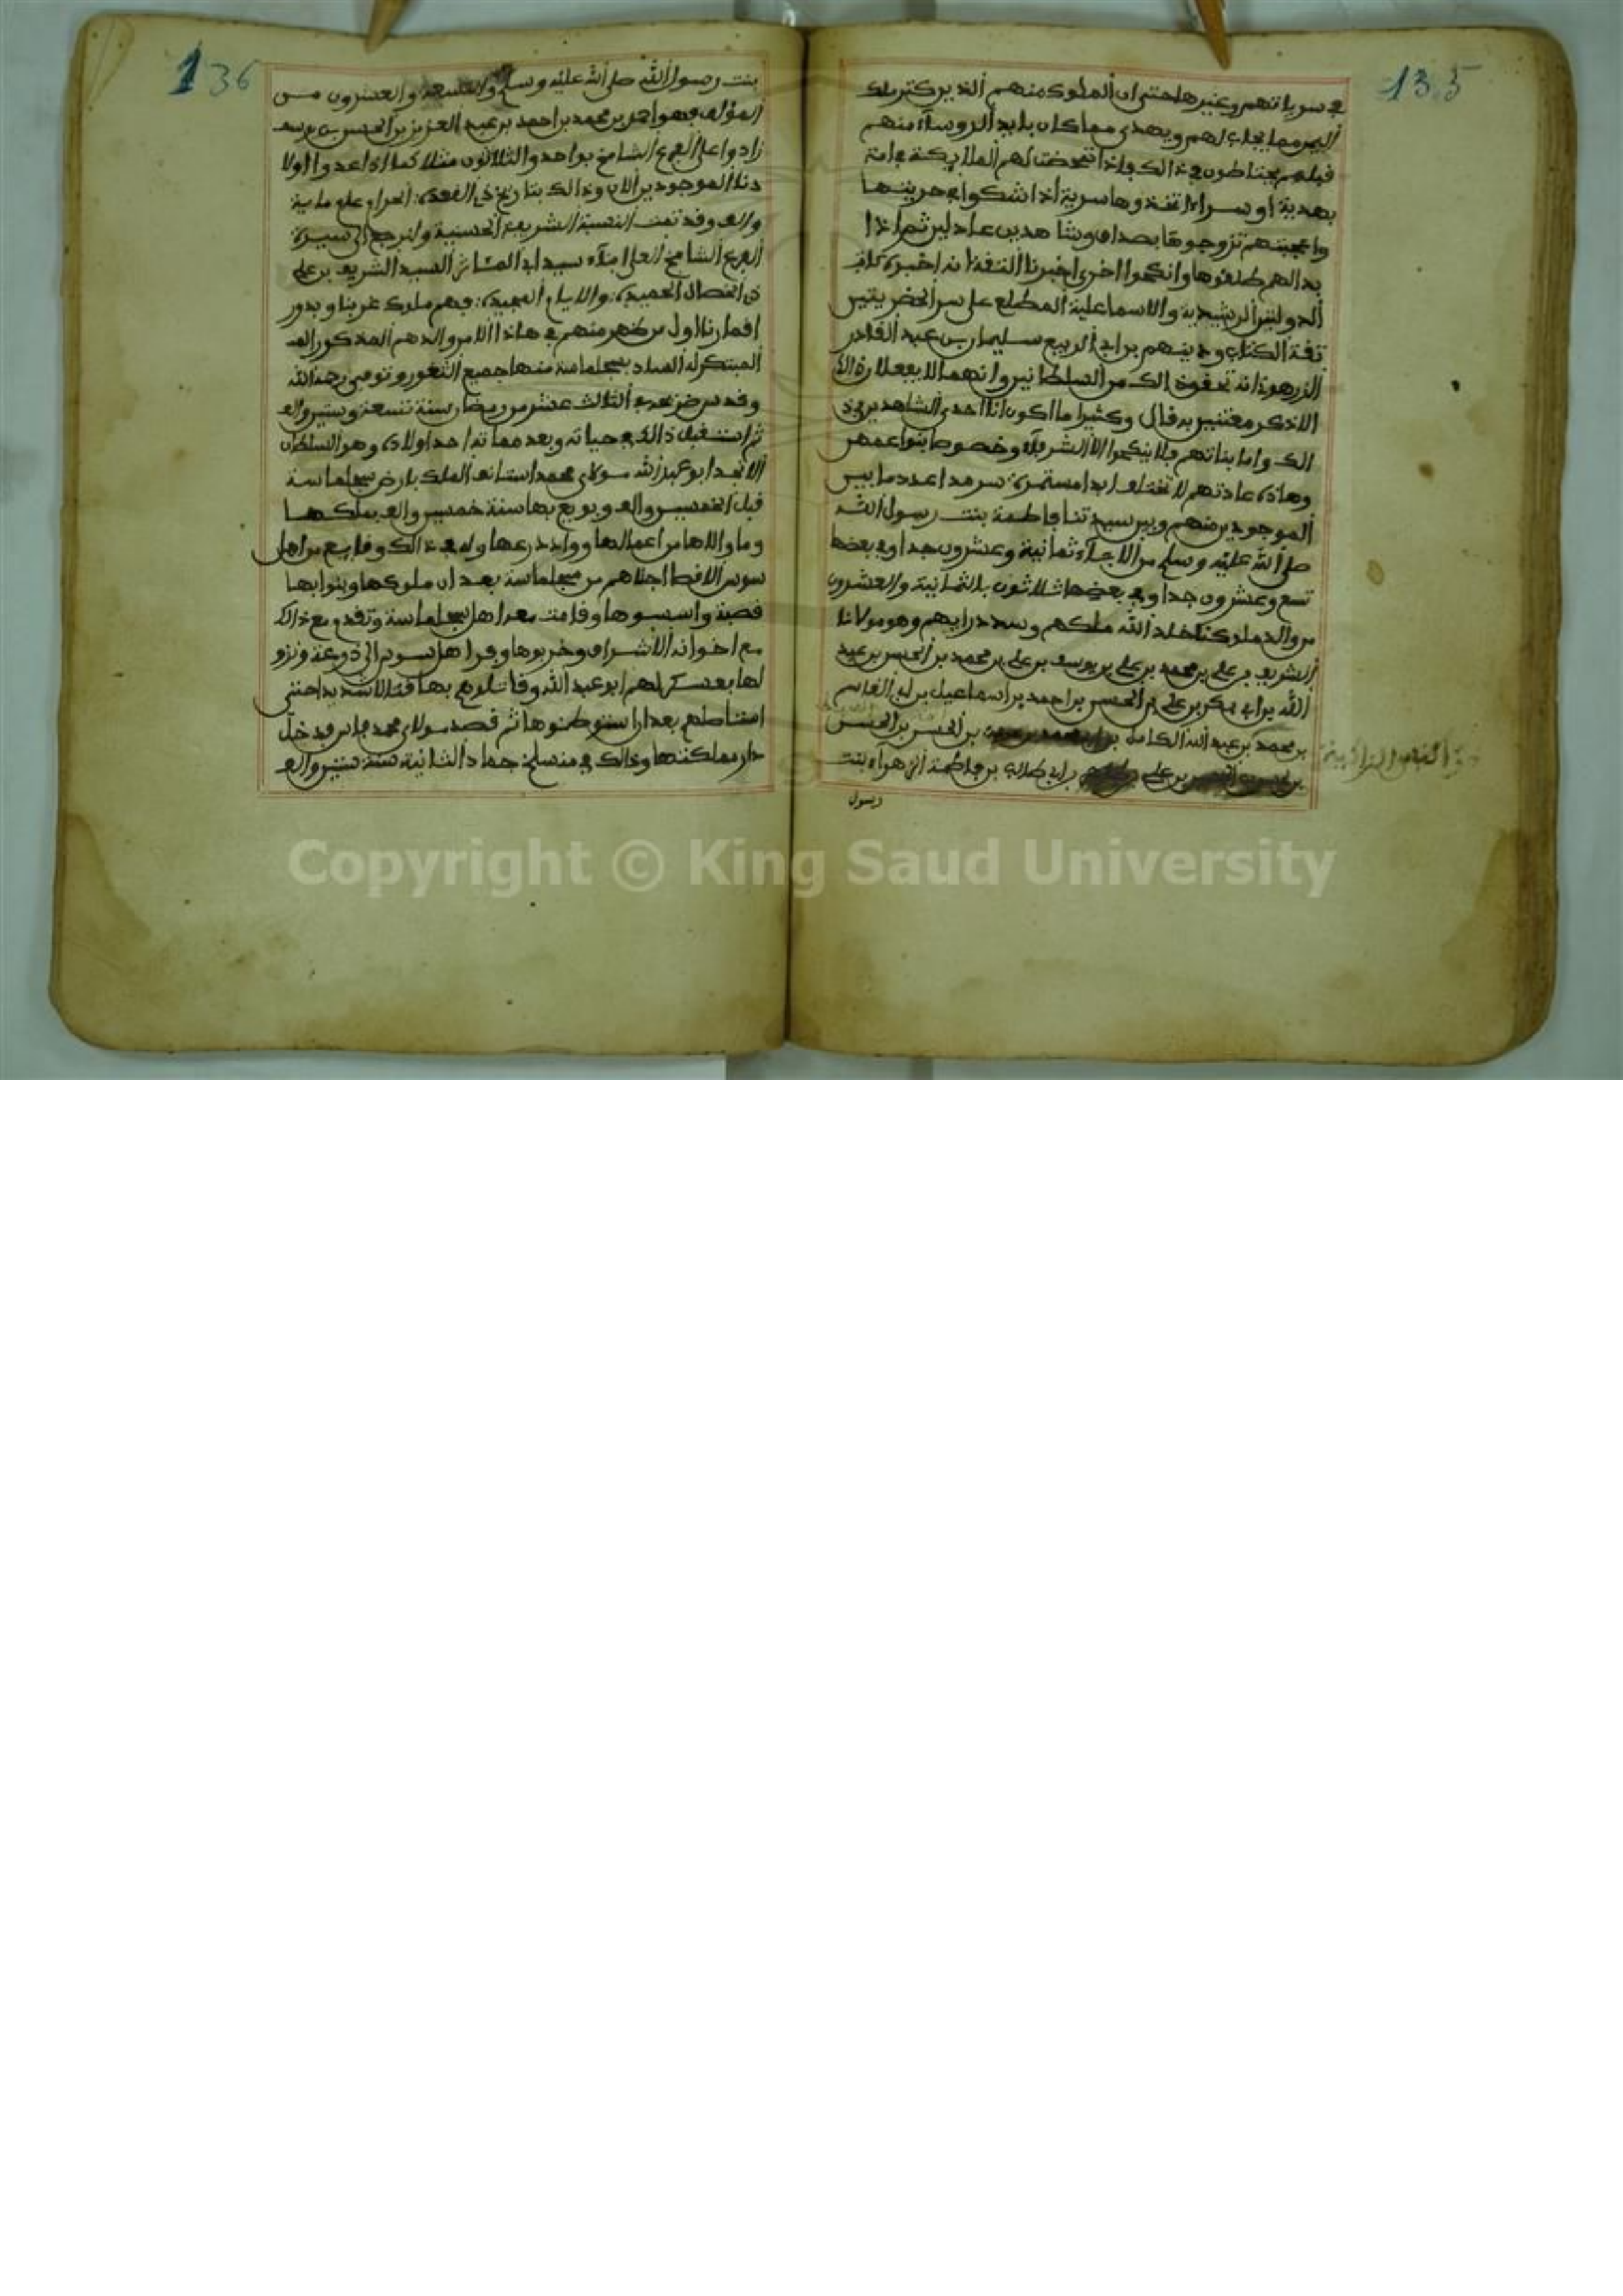 135
في سرياتهم وغيرها حتى ان الملوك منهم الذين كثر ملك
اليمين مما يجلب لهم ويهدى مما كان بايد الروساء منهم
قبلهم يحتاطون في ذالك فاذا تمحضت لهم الملايكة في امة
بهدية او سراء اتخذوها سرية اذا شكوا في حريتها
واعجبتهم تزوجوها بصداق وشاهدين عادلين ثم اذا
بدا لهم طلقوها وانكحوا اخرى اخبرنا الثقة انه اخبره كاتب
الدولتين الرشيدية والاسماعلية المطلع على سر الحضريتين
ثقة الكتاب وديبهم بن ابي الربيع سليمان بن عبد القادر
الزرهوني انه تحقق ذالك من السلطانين وانهما لا يفعلان الا
الا ذكر معتنين به قال وكثيرا ما اكون انا احدى الشاهدين في ذ
الك واما بناتهم فلا ينكحوا الا الشرفاء وخصوصا بنوا عمهم
وهاذه عادتهم لا تختلف ابدا مستمرة سرمدا عدد ما بين
الموجودين منهم وبين سيدتنا فاطمة بنت رسول الله
صلى الله عليه وسلم من الاجداء ثمانية وعشرون جدا وفي بعضها
تسع وعشرون جدا وفي بعضها ثلاثون بالثمانية والعشرون
من والد ملوكنا خلد الله ملكهم وسدد رايهم وهو مولانا
الشريف بن علي بن محمد بن علي بن يوسف بن علي بن محمد بن الحسن بن عبد
الله بن ابي بكر بن علي بن الحسن بن احمد بن اسماعيل بن ابي القاسم
بن محمد بن عبد الله الكامل بن الحسن بن الحسن
بن علي بن ابي طالب بن فاطمة الزهراء بنت
رسول
136
بنت رسول الله صلى الله عليه وسلم والتسعة والعشرون من
المؤلف فهو احمد بن محمد بن احمد بن عبد العزيز بن الحسن بن يوسف
زادوا على الفرع الشامخ بواحد والثلاثون مثلا كما اذا عدوا اولا
دنا الموجودين الان وذالك بتاريخ ذي القعدة الحرام على مائة
والف وقد تمت النسبة الشريفة الحسنية ولنرجع الى سيرة
الفرع الشامخ العلى ابناء سيد السيد الشريف بن علي
ذي الخصال الحميدة والايام المجيدة فهم ملوك غربنا وبدور
اقمارنا اول من ظهر منهم في هاذا الامر والدهم المذكور
المبتكر له الميلاد بسجلماسة منها جميع الثغور وتوفي رحمه الله
وقد سن ضريحه الثالث عشر من رمضان سنة تسعة وستين والف
ثم استقبل ذالك في حياته وبعد مماته احد اولاده وهو السلطان
الانجد ابو عبد الله مولاي محمد استانف الملك بارض سجلماسة
قبل الخمسين والف وبويع بها سنة خمسين والف بملكها
وما والاها من اعمالها ووادي درعها وله في ذالك وقايع من اهل
سوس الاقصا اجلاهم من سجلماسة بعد ان ملوكها وبنوا بها
قصبة واسسوها وقامت معه اهل سجلماسة وتقدم مع ذالك
مع اخوانه الاشراف وخربوها وفر اهل سوس الى درعة ونزو
لها بعسكر لهم ابو عبد الله وقاتلوهم بها قتالا شديدا حتى
استاطهم بعد ان استوطنوها ثم قصد مولاي محمد فاس فدخل
دار مملكتها وذالك في منسلخ جماد الثانية سنة ستين والف
Copyright © King Saud University